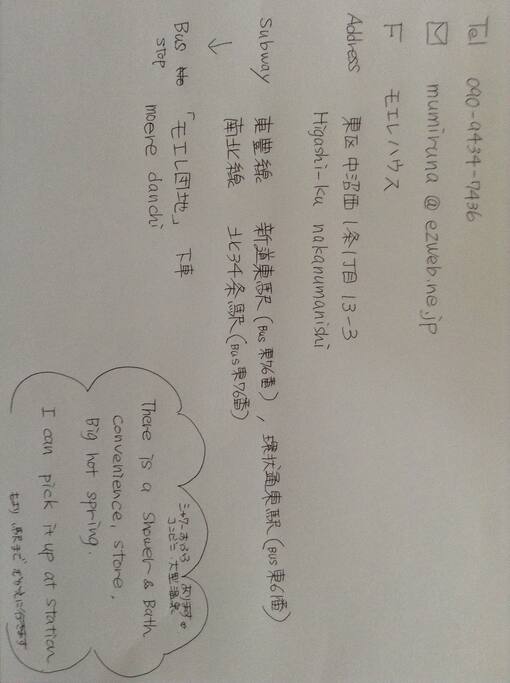 Tel 090-9434-7436
mumiruna @ ezweb.ne.jp
F モエレハウス
Address 東区 中沼西 1条1丁目 13-3
Higashi-ku nakanumanishi
Subway 東豊線 新道東駅 (Bus 東76番), 環状通東駅 (Bus 東61番)
南北線 北34条駅 (Bus 東76番)
Bus stop 「モエレ団地」 下車
moere danchi
シャワーおふろ あります。
コンビニ・大型温泉
There is a shower & Bath
convenience, store,
Big hot spring.
I can pick it up at station